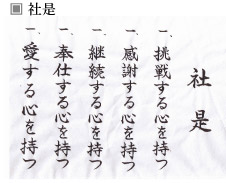 社是
社是
一、挑戦する心を持つ
一、感謝する心を持つ
一、継続する心を持つ
一、奉仕する心を持つ
一、愛する心を持つ